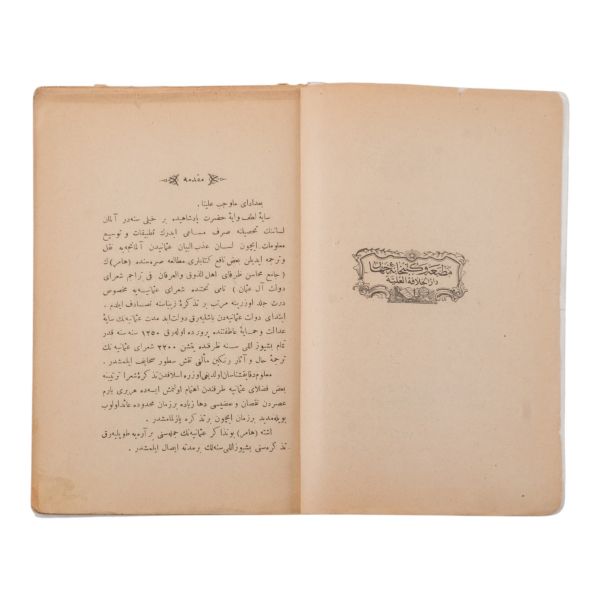 مقدمه
بعد ادای ماوجب علینا،
سایهٔ لطفوایهٔ حضرت پادشاهیده بر خیلی سنه‌در آلمان
لساننك تحصیلنه صرف مساعی ایدرك تطبیقات و توسیع
معلومات ایچون لسان عذب البیان عثمانیدن آلمانجه‌یه نقل
و ترجمه ایدیلن بعض نافع کتابلری مطالعه صره‌سنده (هامر) ك
( جامع محاسن ظرفای اهل الذوق والعرفان فی تراجم شعرای
دولت آل عثمان ) نامی تحتنده شعرای عثمانیه‌یه مخصوص
درت جلد اوزرینه مرتب بر تذکرهٔ زیباسنه تصادف ایلدم .
ابتدای دولت عثمانیه‌دن باشلیه‌رق دولت ابد مدت عثمانیه‌نك سایهٔ
عدالت و حمایهٔ عاطفتنده پرورده اوله‌رق ۱۲۵۰ سنه‌سنه قدر
تمام بشیوز اللی سنه ظرفنده یتشن ۲۲۰۰ شعرای عثمانیه‌نك
ترجمهٔ حال و آثار رنگین مآلنی نقش سطور صحایف ایلمشدر .
معلوم دقایقشناسان اولدیغی اوزره اسلافدن تذکرهٔ شعرا ترتیبنه
بعض فضلای عثمانیه طرفندن اهتمام اولنمش ایسه‌ده هربری یارم
عصردن نقصان و بعضیسی دها زیاده بر زمان محدوده عائد اولوب
بویله مدید بر زمان ایچون بر تذکره یازلمامشدر .
اشته (هامر) بو تذاکر عثمانیه‌نك جمله‌سنی بر آره‌یه طوپلیه‌رق
تذکره‌سنی بشیوز اللی سنه‌لك بر مدته ایصال ایلمشدر .
دار الخلافة العلیه